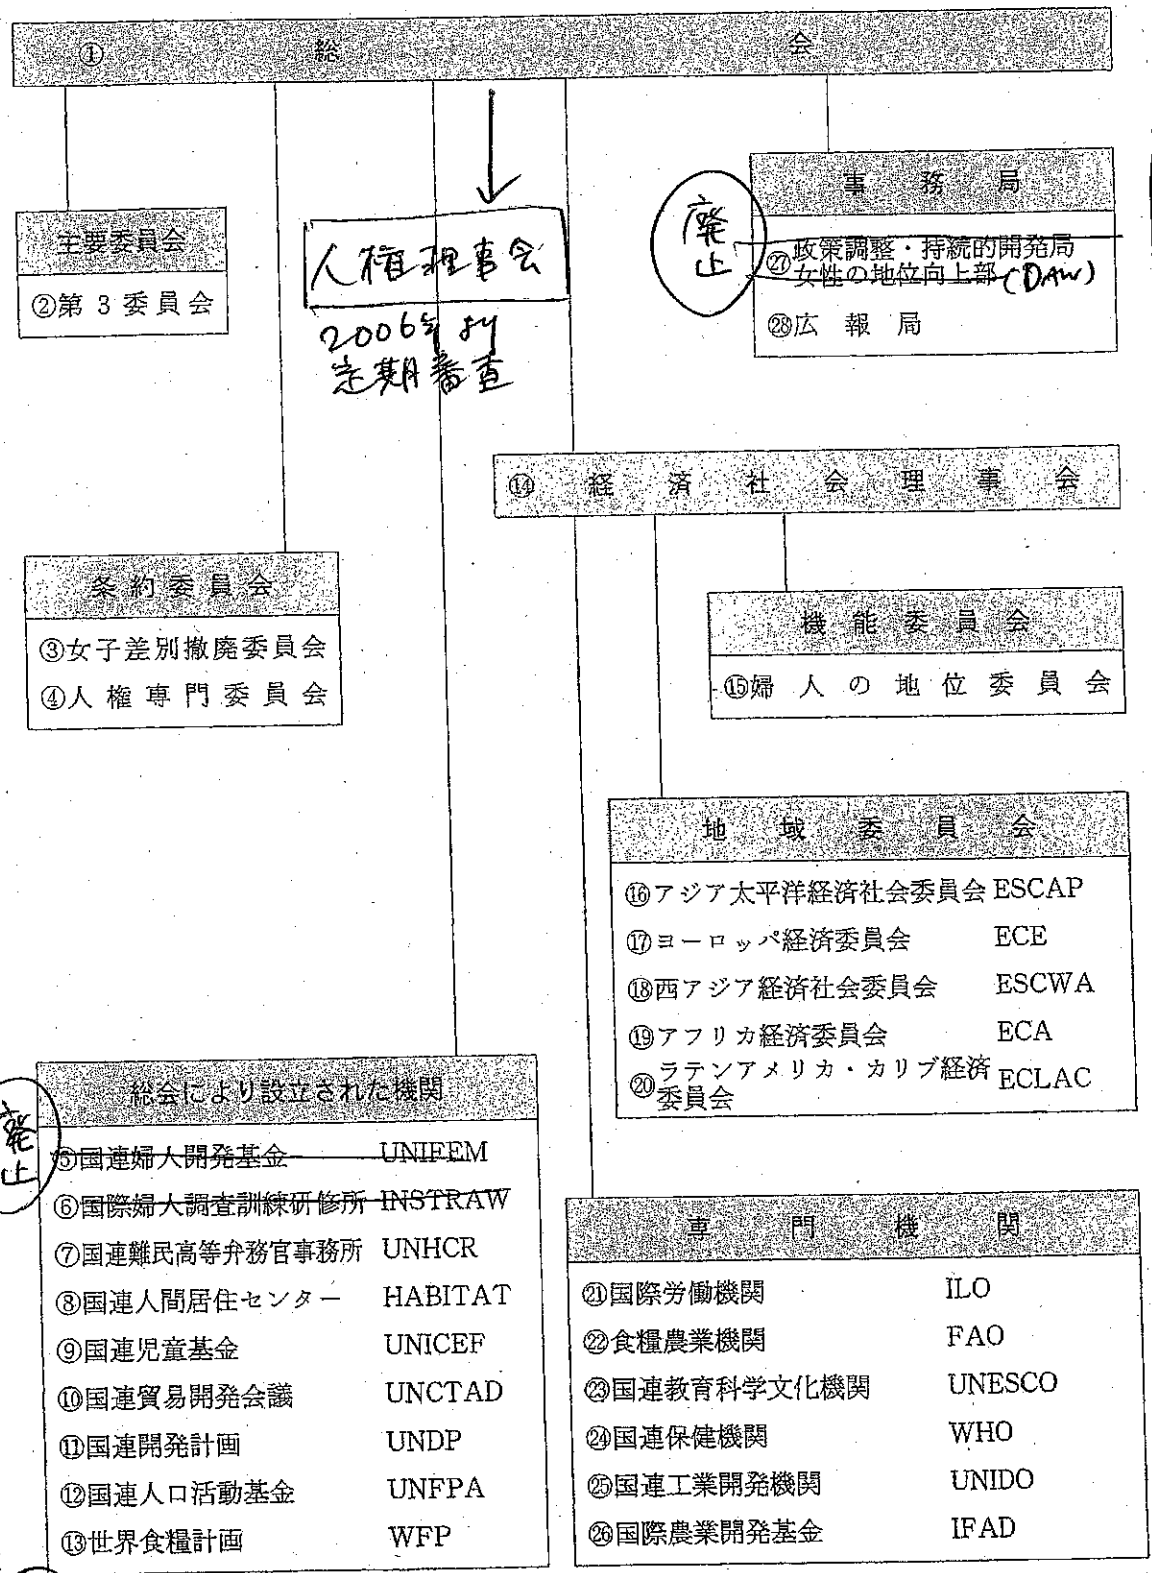 ① 総会
主要委員会
②第3委員会
人権理事会
2006年より
定期審査
廃止
事務局
㉗政策調整・持続的開発局
女性の地位向上部(DAW)
㉘広報局
⑭経済社会理事会
条約委員会
③女子差別撤廃委員会
④人権専門委員会
機能委員会
⑮婦人の地位委員会
地域委員会
⑯アジア太平洋経済社会委員会 ESCAP
⑰ヨーロッパ経済委員会 ECE
⑱西アジア経済社会委員会 ESCWA
⑲アフリカ経済委員会 ECA
⑳ラテンアメリカ・カリブ経済
委員会 ECLAC
総会により設立された機関
廃止
⑤国連婦人開発基金 UNIFEM
⑥国際婦人調査訓練研修所 INSTRAW
⑦国連難民高等弁務官事務所 UNHCR
⑧国連人間居住センター HABITAT
⑨国連児童基金 UNICEF
⑩国連貿易開発会議 UNCTAD
⑪国連開発計画 UNDP
⑫国連人口活動基金 UNFPA
⑬世界食糧計画 WFP
専門機関
㉑国際労働機関 ILO
㉒食糧農業機関 FAO
㉓国連教育科学文化機関 UNESCO
㉔国連保健機関 WHO
㉕国連工業開発機関 UNIDO
㉖国際農業開発基金 IFAD